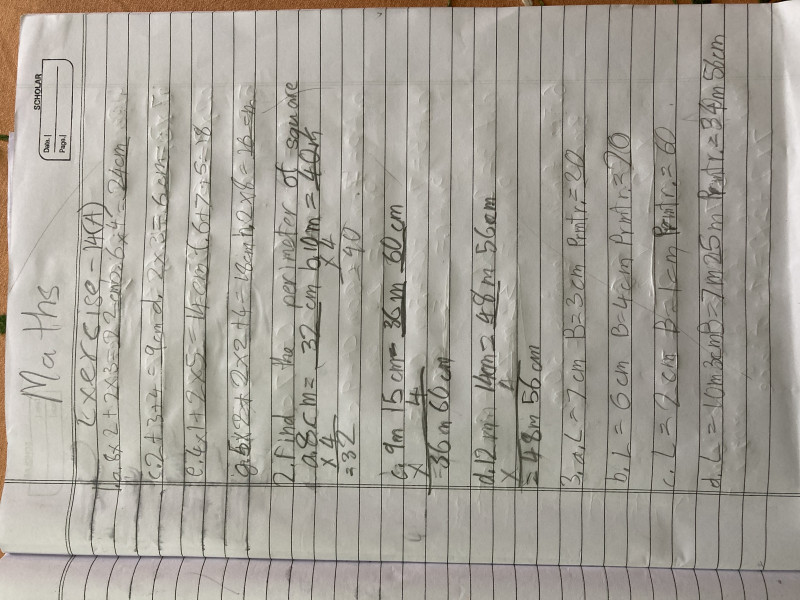 SCHOLAR
Date.
Page.
Maths
Exercise - 14(A)
1.a. 8×2+2×3=22cm b. 6×4=24cm
c. 2+3+4=9cm d. 2×3=6cm
e. 4×1+2×5=14cm f. 6+7+5=18
g. 5×2+2×2+4=18cm h. 2×8=16
2. Find the perimeter of square
a. 8cm=32cm b. 10m=40m
×4 ×4
=32 =40
c. 9m 15cm=36m 60cm
× 4
=36m 60cm
d. 12m 14cm=48m 56cm
× 4
=48m 56cm
3. a. L=7cm B=3cm Prmtr.=20
b. L=6cm B=4cm Prmtr.=20
c. L=2cm Prmtr.=60
d. L=10m 3cm B=7m 25m Prmtr.=34m 56cm